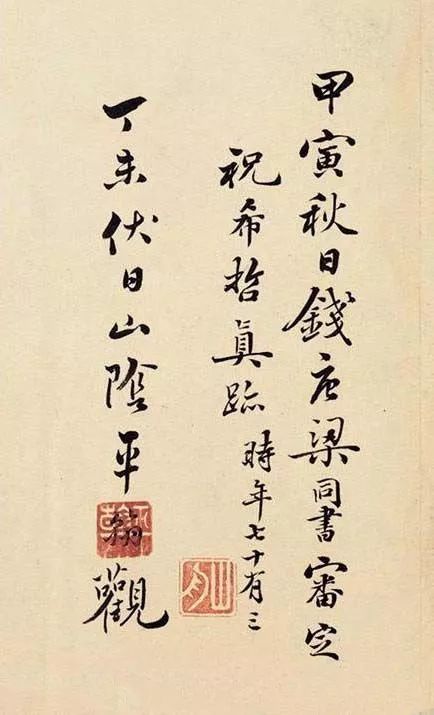 甲寅秋日錢唐梁同書審定
祝希哲眞跡時年七十有三
山舟
丁未伏日山陰平翰觀